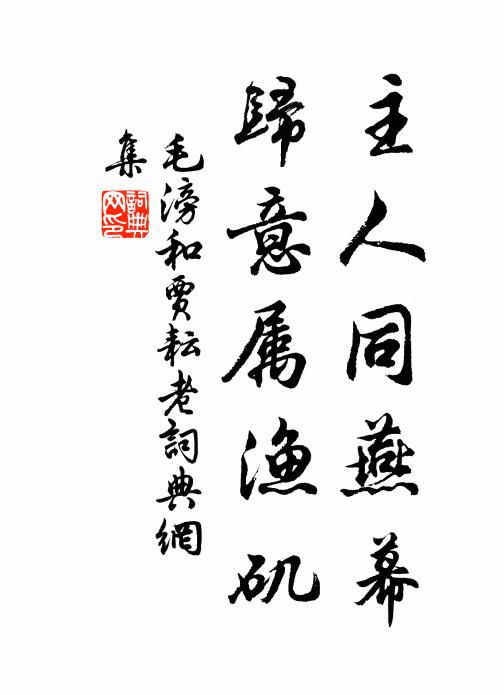 主人同燕幕
歸意属漁矶
毛滂和賈耘老詞典網
集
詞典網印